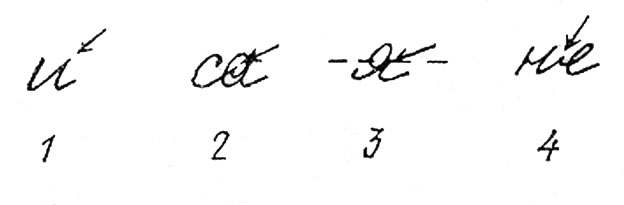 и са -я- не
1 2 3 4